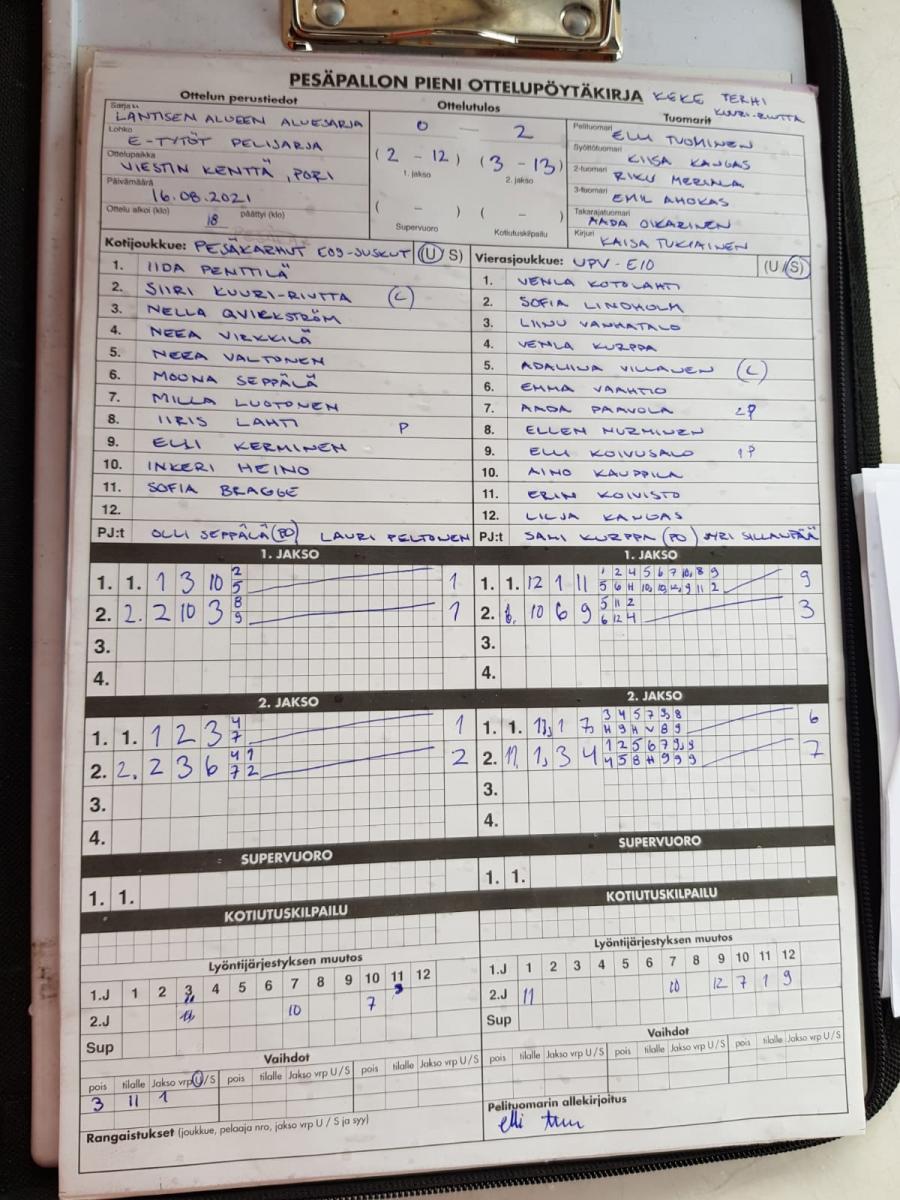 PESÄPALLON PIENI OTTELUPÖYTÄKIRJA KEKE TERHI
KUURI-RIUTTA
Ottelun perustiedot
Ottelutulos
Tuomarit
Sarja
LÄNTISEN ALUEEN ALUESARJA
Lohko
E-TYTÖT PELISARJA
Ottelupaikka
VIESTIN KENTTÄ, PORI
Päivämäärä
16.08.2021
Ottelu alkoi (klo) 18 päättyi (klo)
0 — 2
(2 - 12) (3 - 13)
1. jakso 2. jakso
( - ) ( - )
Supervuoro Kotiutuskilpailu
Pelituomari
ELLI TUOMINEN
Syöttötuomari
KIISA KANGAS
2-tuomari
RIKU MERIALA
3-tuomari
EMIL AHOKAS
Takarajatuomari
AADA OIKARINEN
Kirjuri
KAISA TUKIAINEN
Kotijoukkue: PESÄKARHUT E09-SUSKUT (U/S)
1. IIDA PENTTILÄ
2. SIIRI KUURI-RIUTTA (C)
3. NELLA QVICKSTRÖM
4. NEEA VIRKKILÄ
5. NEEA VALTONEN
6. MOONA SEPPÄLÄ
7. MILLA LUOTONEN
8. IIRIS LAHTI P
9. ELLI KERMINEN
10. INKERI HEINO
11. SOFIA BRAGGE
12.
PJ:t OLLI SEPPÄLÄ (PO) LAURI PELTONEN
Vierasjoukkue: UPV-E10 (U/S)
1. VENLA KOTOLAHTI
2. SOFIA LINDHOLM
3. LIINU VANHATALO
4. VENLA KURPPA
5. ADALIINA VILLANEN (C)
6. EMMA VAAHTIO
7. AADA PAAVOLA 2P
8. ELLEN NURMINEN
9. ELLI KOIVUSALO 1P
10. AINO KAUPPILA
11. ERIN KOIVISTO
12. LILJA KANGAS
PJ:t SAMI KURPPA (PO) JYRI SILLANPÄÄ
1. JAKSO
1. 1. 1 3 10 2 5 1
2. 2. 2 10 3 8 9 1
3.
4.
1. JAKSO
1. 1. 12 1 11 9
2. 10 6 9 3
5 11 2
6 12 4
3.
4.
2. JAKSO
1. 1. 1 2 3 4 7 1
2. 2. 2 3 6 2
4 1
7 2
3.
4.
2. JAKSO
1. 1. 1 7 6
2. 3 4 7
3.
4.
SUPERVUORO
1. 1.
SUPERVUORO
1. 1.
KOTIUTUSKILPAILU
KOTIUTUSKILPAILU
Lyöntijärjestyksen muutos
1.J 1 2 3 4 5 6 7 8 9 10 11 12
2.J 11 10 7 3
Sup
Lyöntijärjestyksen muutos
1.J 1 2 3 4 5 6 7 8 9 10 11 12
2.J 11 10 12 7 1 9
Sup
Vaihdot
pois tilalle Jakso vrp U/S pois tilalle Jakso vrp U/S pois tilalle Jakso vrp U/S
3 11 1
Vaihdot
pois tilalle Jakso vrp U/S pois tilalle Jakso vrp U/S pois tilalle Jakso vrp U/S
Rangaistukset (joukkue, pelaaja nro, jakso vrp U / S ja syy)
Pelituomarin allekirjoitus
elli